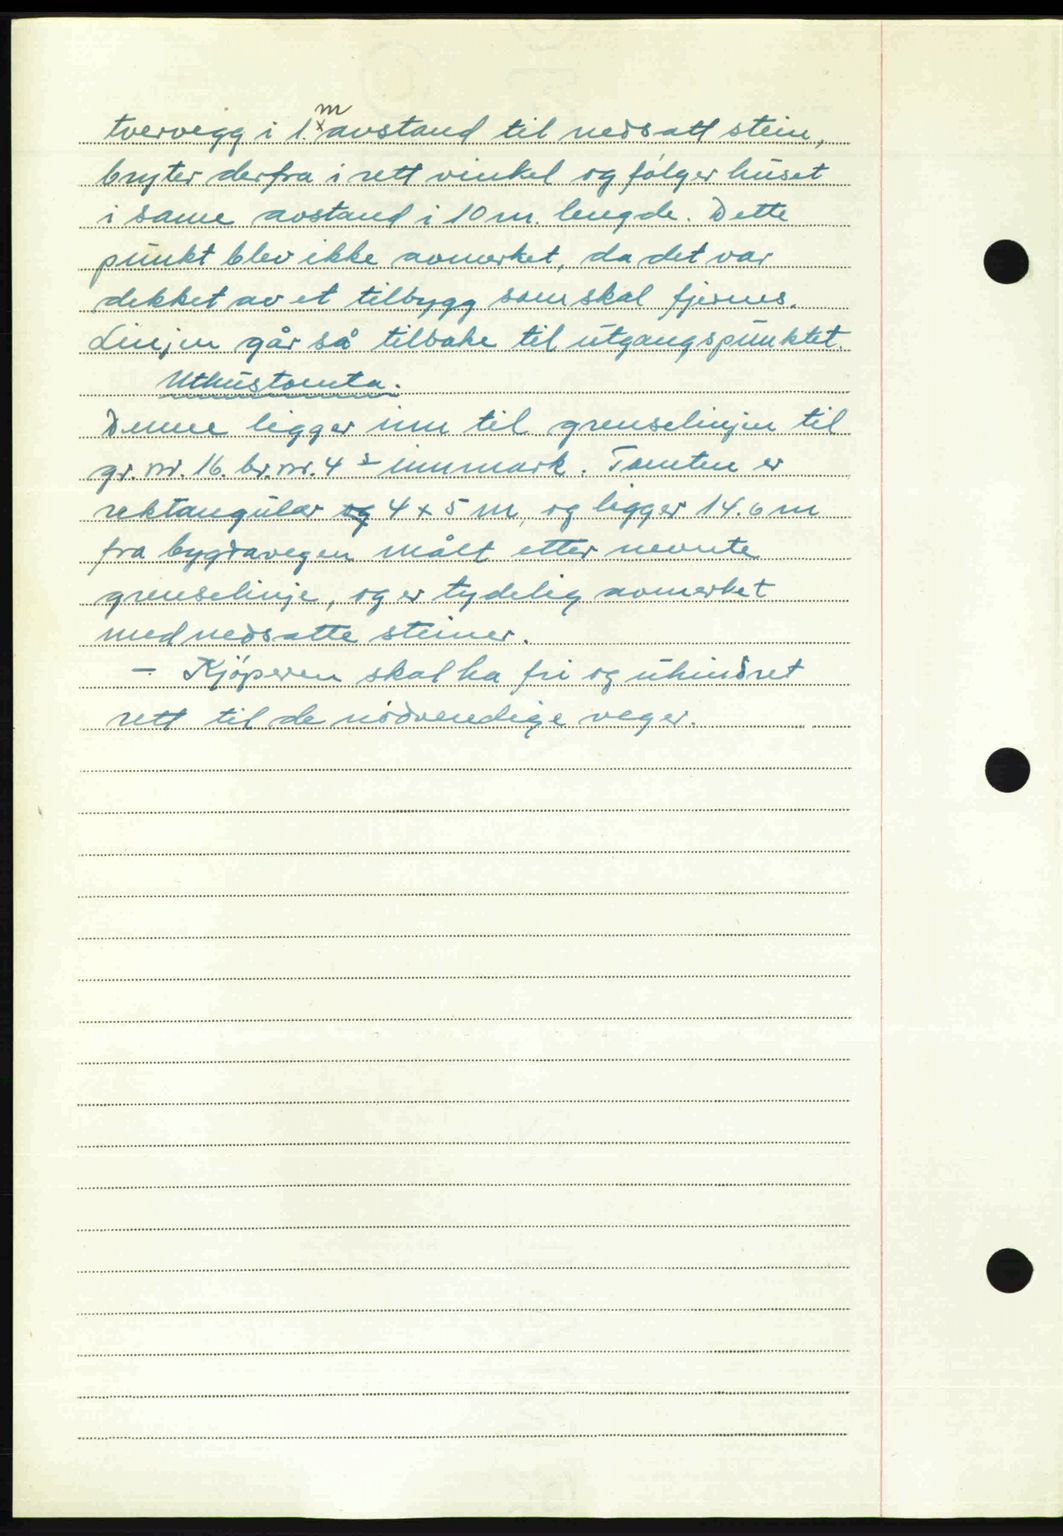 tvervegg i 1.ˣᵐ avstand til nedsatt stein,
bryter derfra i rett vinkel og følger huset
i same avstand i 10 m. lengde. Dette
punkt blev ikke avmerket, da det var
dekket av et tilbygg som skal fjernes.
Linjen går så tilbake til utgangspunktet.
Uthustomta.
Denne ligger inn til grenselinjen til
gr. nr. 16. br. nr. 4ˢ innmark. Tomten er
rektangulær og 4 x 5 m, og ligger 14.6 m
fra bygdavegen målt etter nevnte
grenselinje, og er tydelig avmerket
med nedsatte steiner.
– Kjøperen skal ha fri og uhindret
rett til de nödvendige veger.